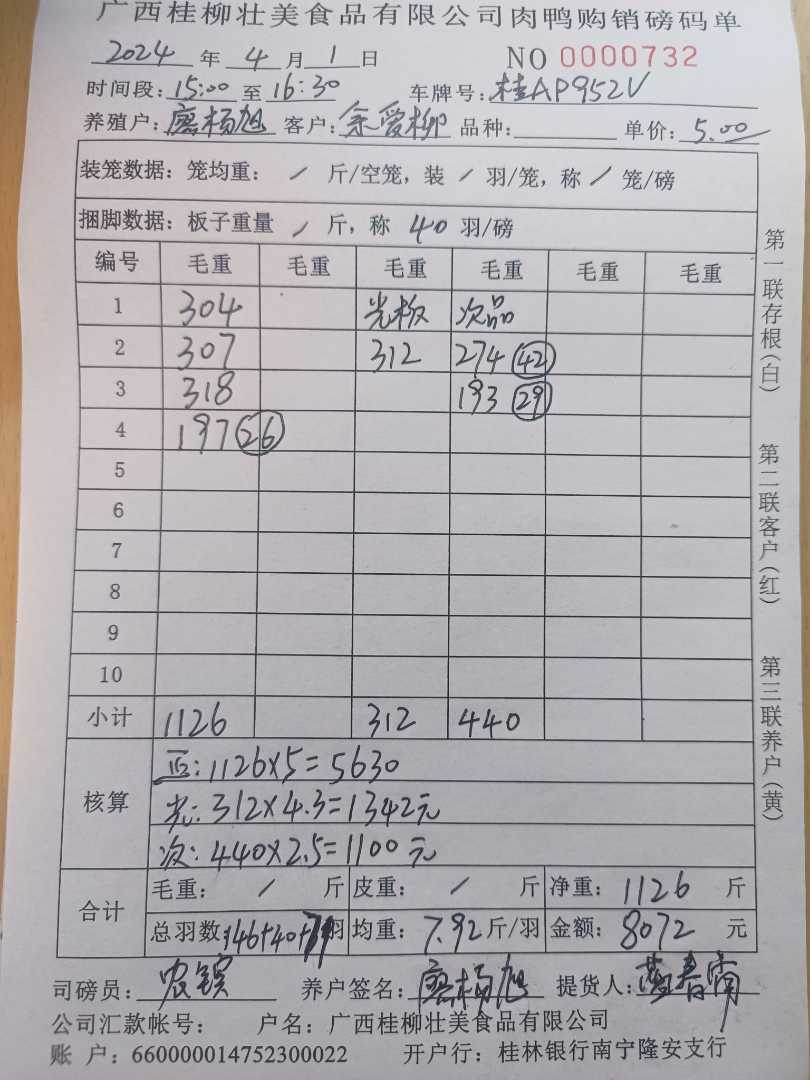 广西桂柳壮美食品有限公司肉鸭购销磅码单
2024 年 4 月 1 日 NO 0000732
时间段: 15:00 至 16:30 车牌号: 桂AP952V
养殖户: 廖杨旭 客户: 余爱柳 品种: 单价: 5.00
装笼数据: 笼均重: / 斤/空笼, 装 / 羽/笼, 称 / 笼/磅
捆脚数据: 板子重量 / 斤, 称 40 羽/磅
编号 毛重 毛重 毛重 毛重 毛重 毛重
1 304 光板 次品
2 307 312 274 42
3 318 193 29
4 197 26
5
6
7
8
9
10
小计 1126 312 440
核算
正: 1126×5=5630
光: 312×4.3=1342元
次: 440×2.5=1100元
合计
毛重: / 斤 皮重: / 斤 净重: 1126 斤
总羽数: 146+40+71 羽 均重: 7.92 斤/羽 金额: 8072 元
司磅员: 农 养户签名: 廖杨旭 提货人: 春南
公司汇款帐号: 户名: 广西桂柳壮美食品有限公司
账 户: 660000014752300022 开户行: 桂林银行南宁隆安支行
第一联存根(白) 第二联客户(红) 第三联养户(黄)